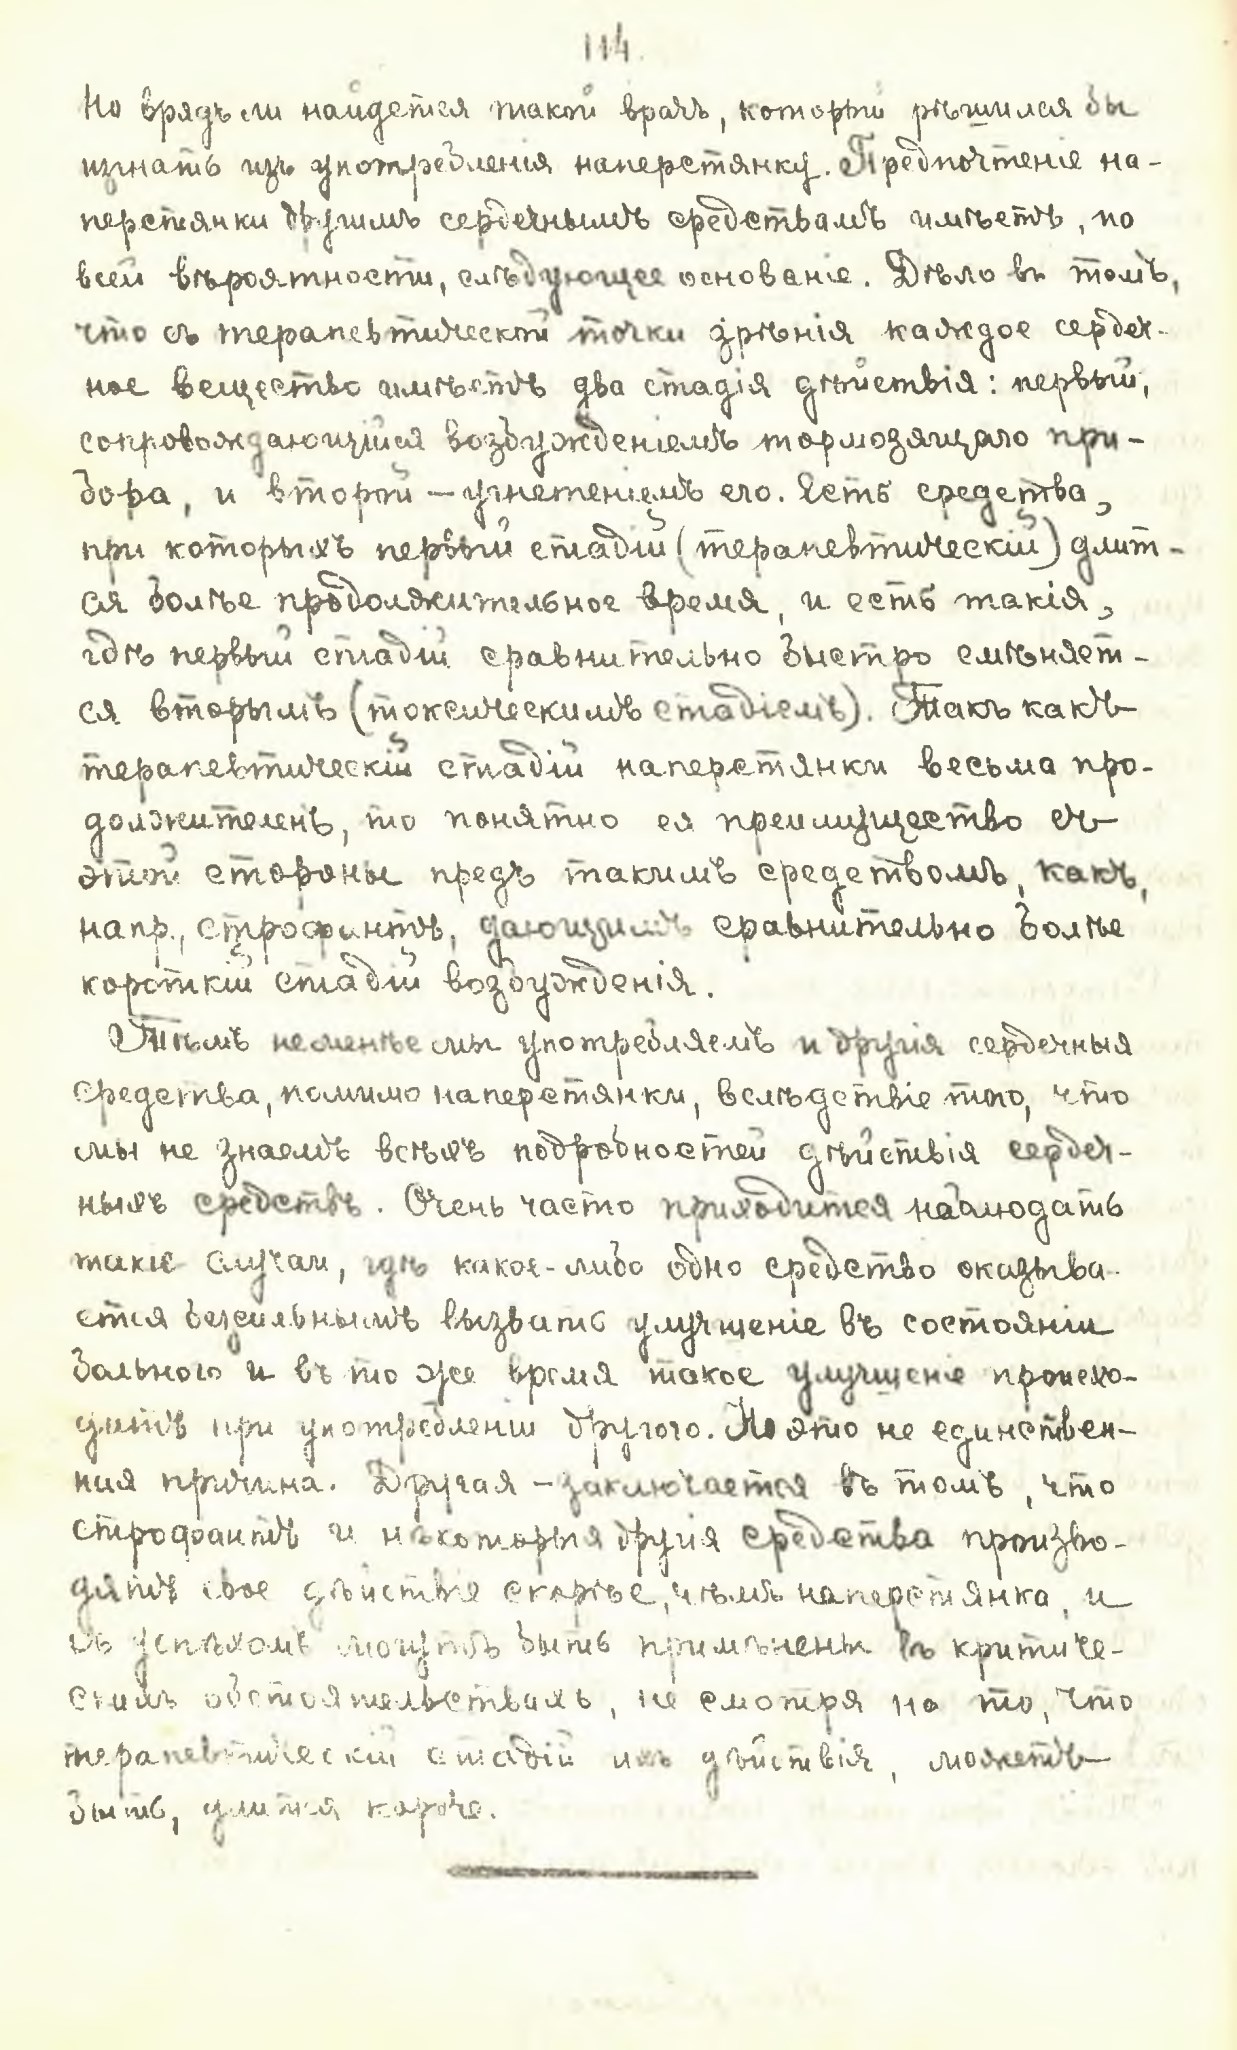 114.
Но врядъ ли найдется такой врачъ, который рѣшился бы
изгнать изъ употребленія наперстянку. Предпочтеніе на-
перстянки другимъ сердечнымъ средствамъ имѣетъ, по
всей вѣроятности, слѣдующее основаніе. Дѣло въ томъ,
что съ терапевтической точки зрѣнія каждое сердеч-
ное вещество имѣетъ два стадія дѣйствія: первый,
сопровождающійся возбужденіемъ тормозящаго при-
бора, и второй — угнетеніемъ его. Есть средства,
при которыхъ первый стадій (терапевтическій) длит-
ся болѣе продолжительное время, и есть такія,
гдѣ первый стадій сравнительно быстро смѣняет-
ся вторымъ (токсическимъ стадіемъ). Такъ какъ
терапевтическій стадій наперстянки весьма про-
должителенъ, то понятно ея преимущество съ
этой стороны предъ такимъ средствомъ, какъ,
напр., строфантъ, дающимъ сравнительно болѣе
короткій стадій возбужденія.
Тѣмъ не менѣе мы употребляемъ и другія сердечныя
средства, помимо наперстянки, вслѣдствіе того, что
мы не знаемъ всѣхъ подробностей дѣйствія сердеч-
ныхъ средствъ. Очень часто приходится наблюдать
такіе случаи, гдѣ какое-либо одно средство оказыва-
ется безсильнымъ вызвать улучшеніе въ состояніи
больного и въ то же время такое улучшеніе происхо-
дитъ при употребленіи другого. Но это не единствен-
ная причина. Другая — заключается въ томъ, что
строфантъ и нѣкоторыя другія средства произво-
дятъ свое дѣйствіе скорѣе, чѣмъ наперстянка, и
съ успѣхомъ могутъ быть примѣнены въ критиче-
скихъ обстоятельствахъ, не смотря на то, что
терапевтическій стадій ихъ дѣйствія, можетъ
быть, длится короче.